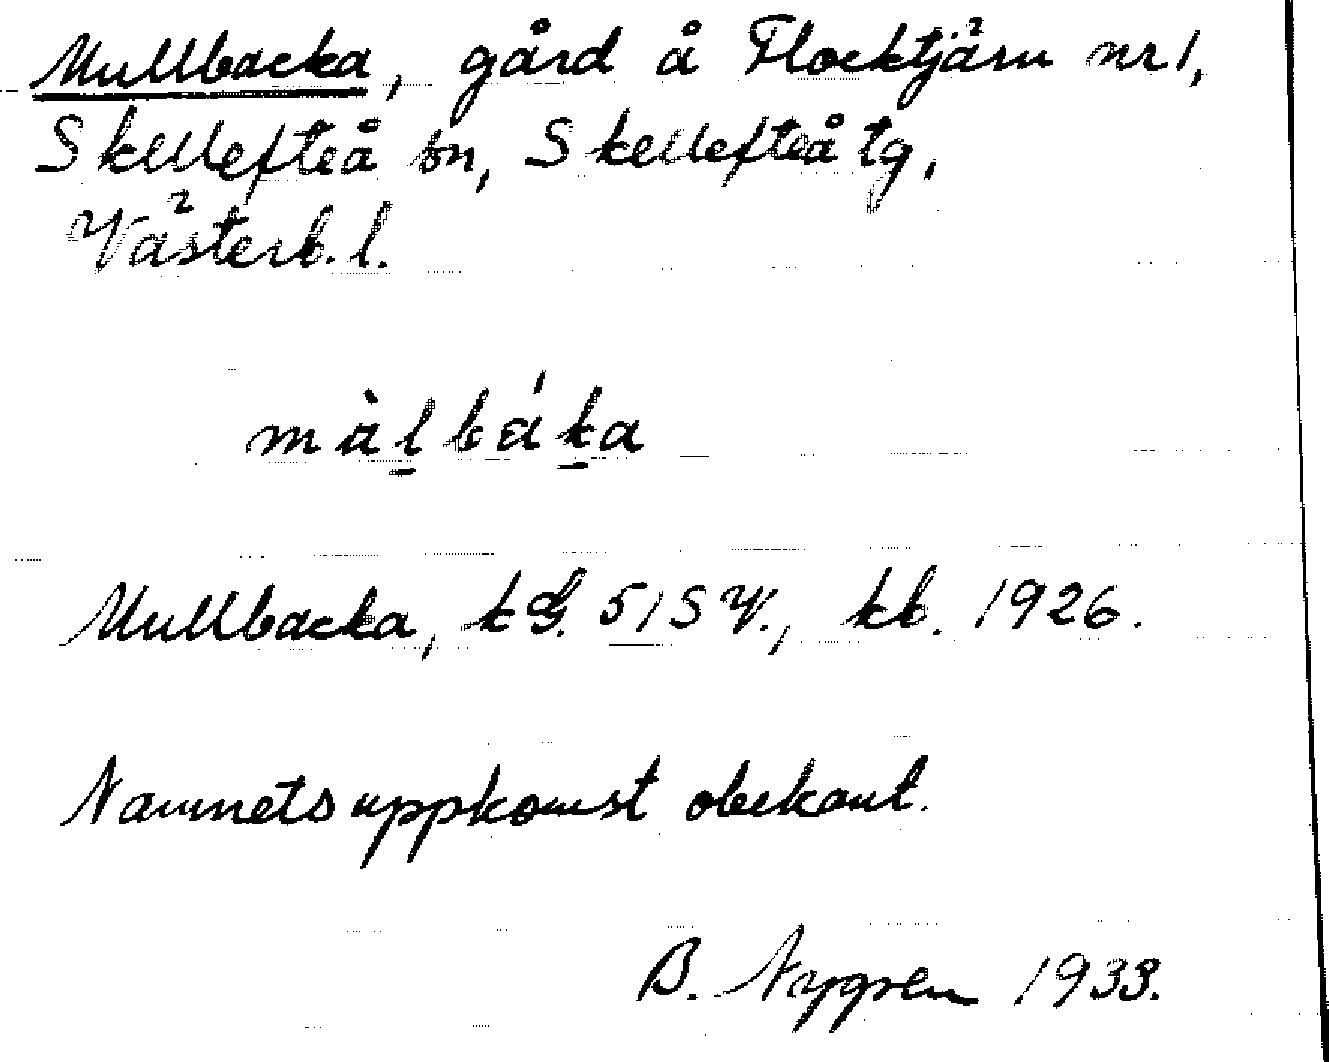 Mullbacka, gård å Flocktjärn nr 1,
Skellefteå sn, Skellefteå tg,
Västerb. l.
màlbáka
Mullbacka, kG. 51SV., kb. 1926.
Namnets uppkomst obekant.
B. Nygren 1933.